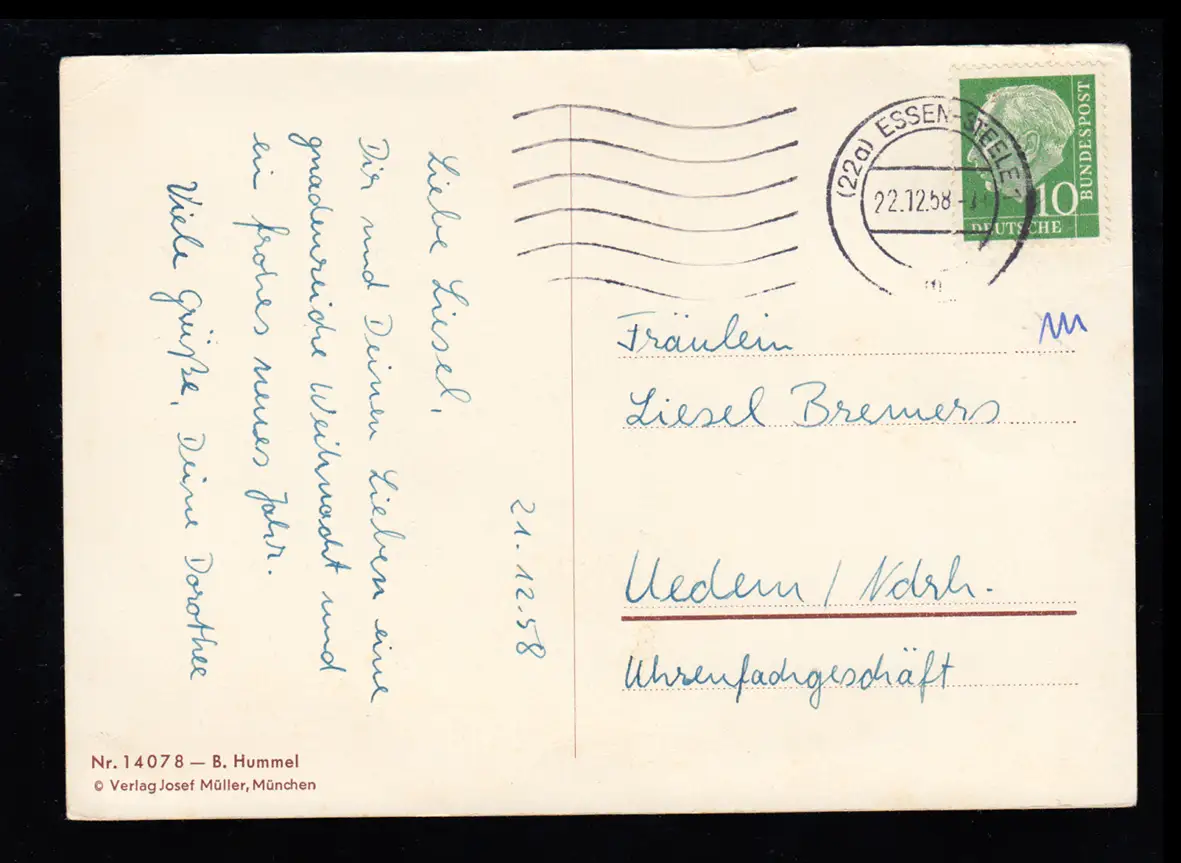 21.12.58
Liebe Liesel,
Dir und Deinen Lieben eine
gnadenreiche Weihnacht und
ein frohes neues Jahr.
Viele Grüße, Deine Dorothee
Nr. 14078 — B. Hummel
© Verlag Josef Müller, München
(22a) ESSEN-STEELE 1
22.12.58
DEUTSCHE
BUNDESPOST
10
Fräulein
Liesel Bremers
Uedem / Ndrh.
Uhrenfachgeschäft